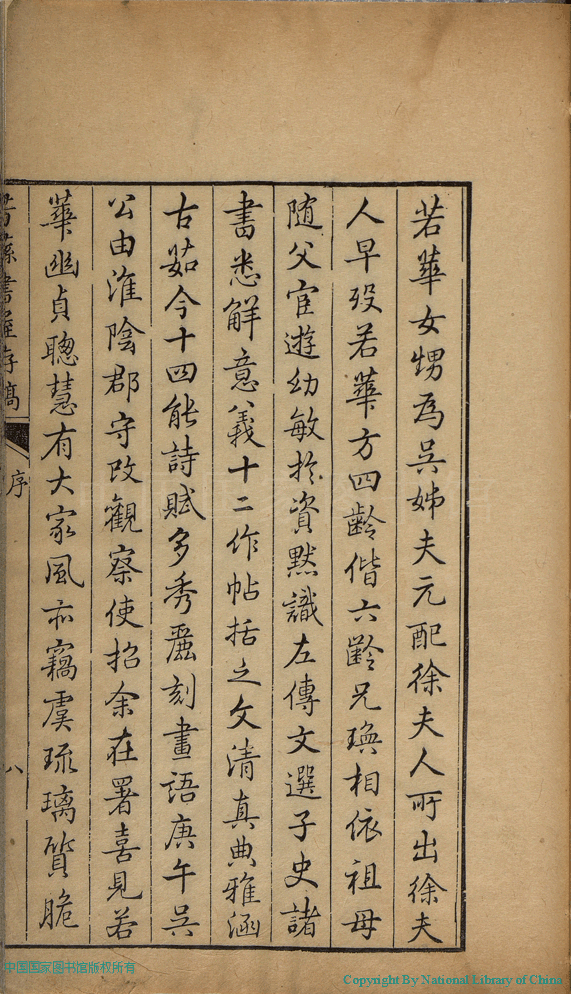 若華女甥為吳姊夫元配徐夫人所出徐夫
人早歿若華方四齡偕六齡兄璵相依祖母
隨父宦遊幼敏於資默識左傳文選子史諸
書悉解意義十二作帖括之文清真典雅涵
古茹今十四能詩賦多秀麗刻畫語庚午吳
公由淮陰郡守改觀察使招余在署喜見若
華幽貞聰慧有大家風亦竊虞琉璃質脆
書屋存稿
序
八
中国国家图书馆版权所有
Copyright By National Library of China